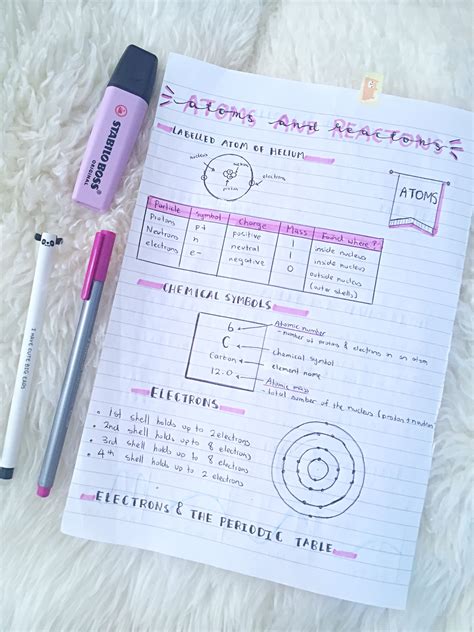 STABILO BOSS
ORIGINAL
ATOMS AND REACTONS
atoms and reactons
LABELLED ATOM OF HELIUM
nucleus
neutron
proton
electrons
ATOMS
Particle Symbol Charge Mass Found where?
Protons p+ positive 1 inside nucleus
Neutrons n neutral 1 inside nucleus
electrons e- negative 0 outside nucleus
(outer shells)
CHEMICAL SYMBOLS
6
C
Carbon
12.0
Atomic number
- number of protons & electrons in an atom
chemical symbol
element name
Atomic mass
- total number of the nucleus (proton + neutron
ELECTRONS
• 1st shell holds up to 2 electrons
• 2nd shell holds up to 8 electrons
• 3rd shell holds up to 8 electrons
• 4th shell holds up to 2 electrons
ELECTRONS & THE PERIODIC TABLE